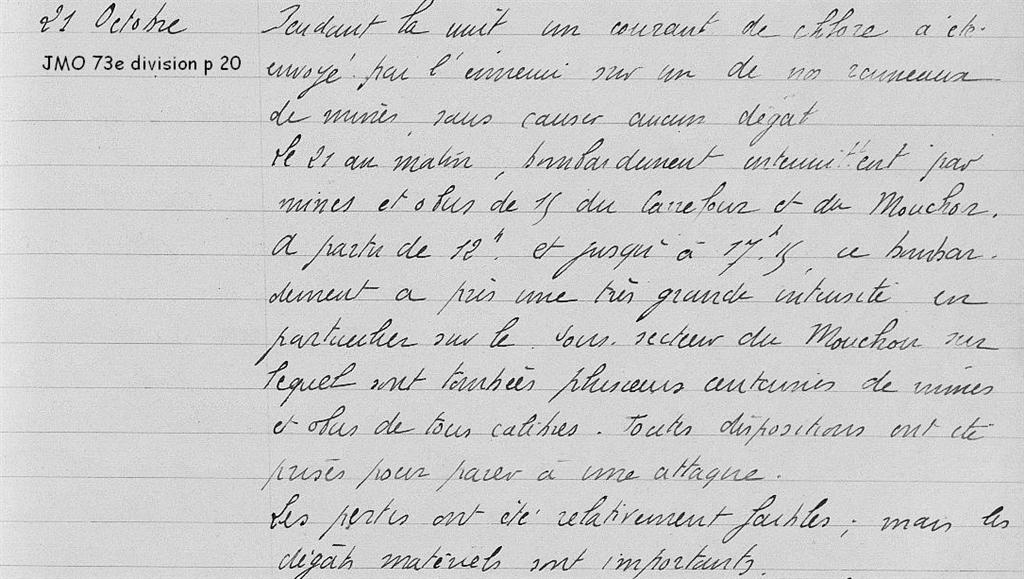 21 Octobre Pendant la nuit un courant de chlore a été
JMO 73e division p 20
envoyé par l'ennemi sur un de nos rameaux
de mines sans causer aucun dégat
Le 21 au matin, bombardement intermittent par
mines et obus de 15 du Carrefour et du Mouchoir.
A partir de 12h. et jusqu'à 17h.15, ce bombar-
dement a pris une très grande intensité en
particulier sur le sous-secteur du Mouchoir sur
lequel sont tombées plusieurs centaines de mines
et obus de tous calibres. Toutes dispositions ont été
prises pour parer à une attaque.
Les pertes ont été relativement faibles; mais les
dégâts matériels sont importants.